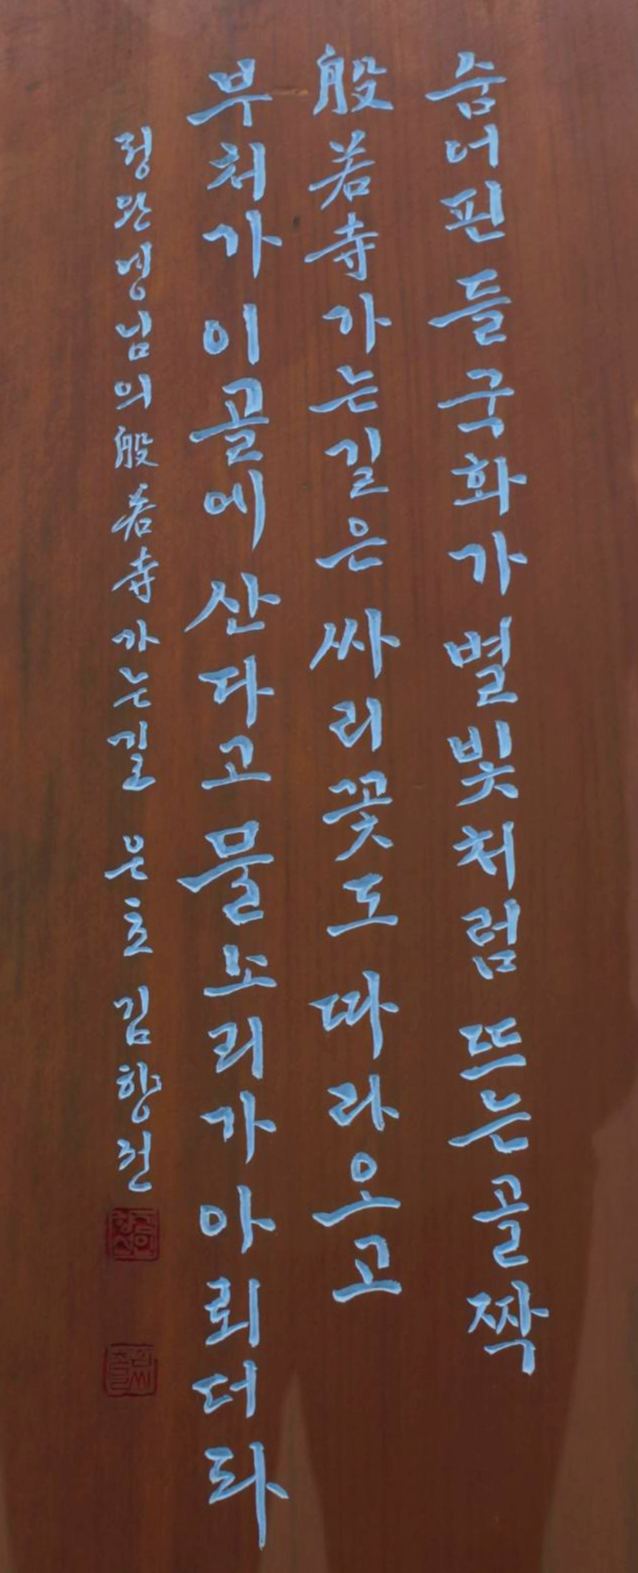 숨어 핀 들국화가 별빛처럼 뜨는 골짝
般若寺 가는 길은 싸리꽃도 따라오고
부처가 이 골에 산다고 물노리가 아뢰더라
정완영님의 般若寺 가는 길 은초 김향선